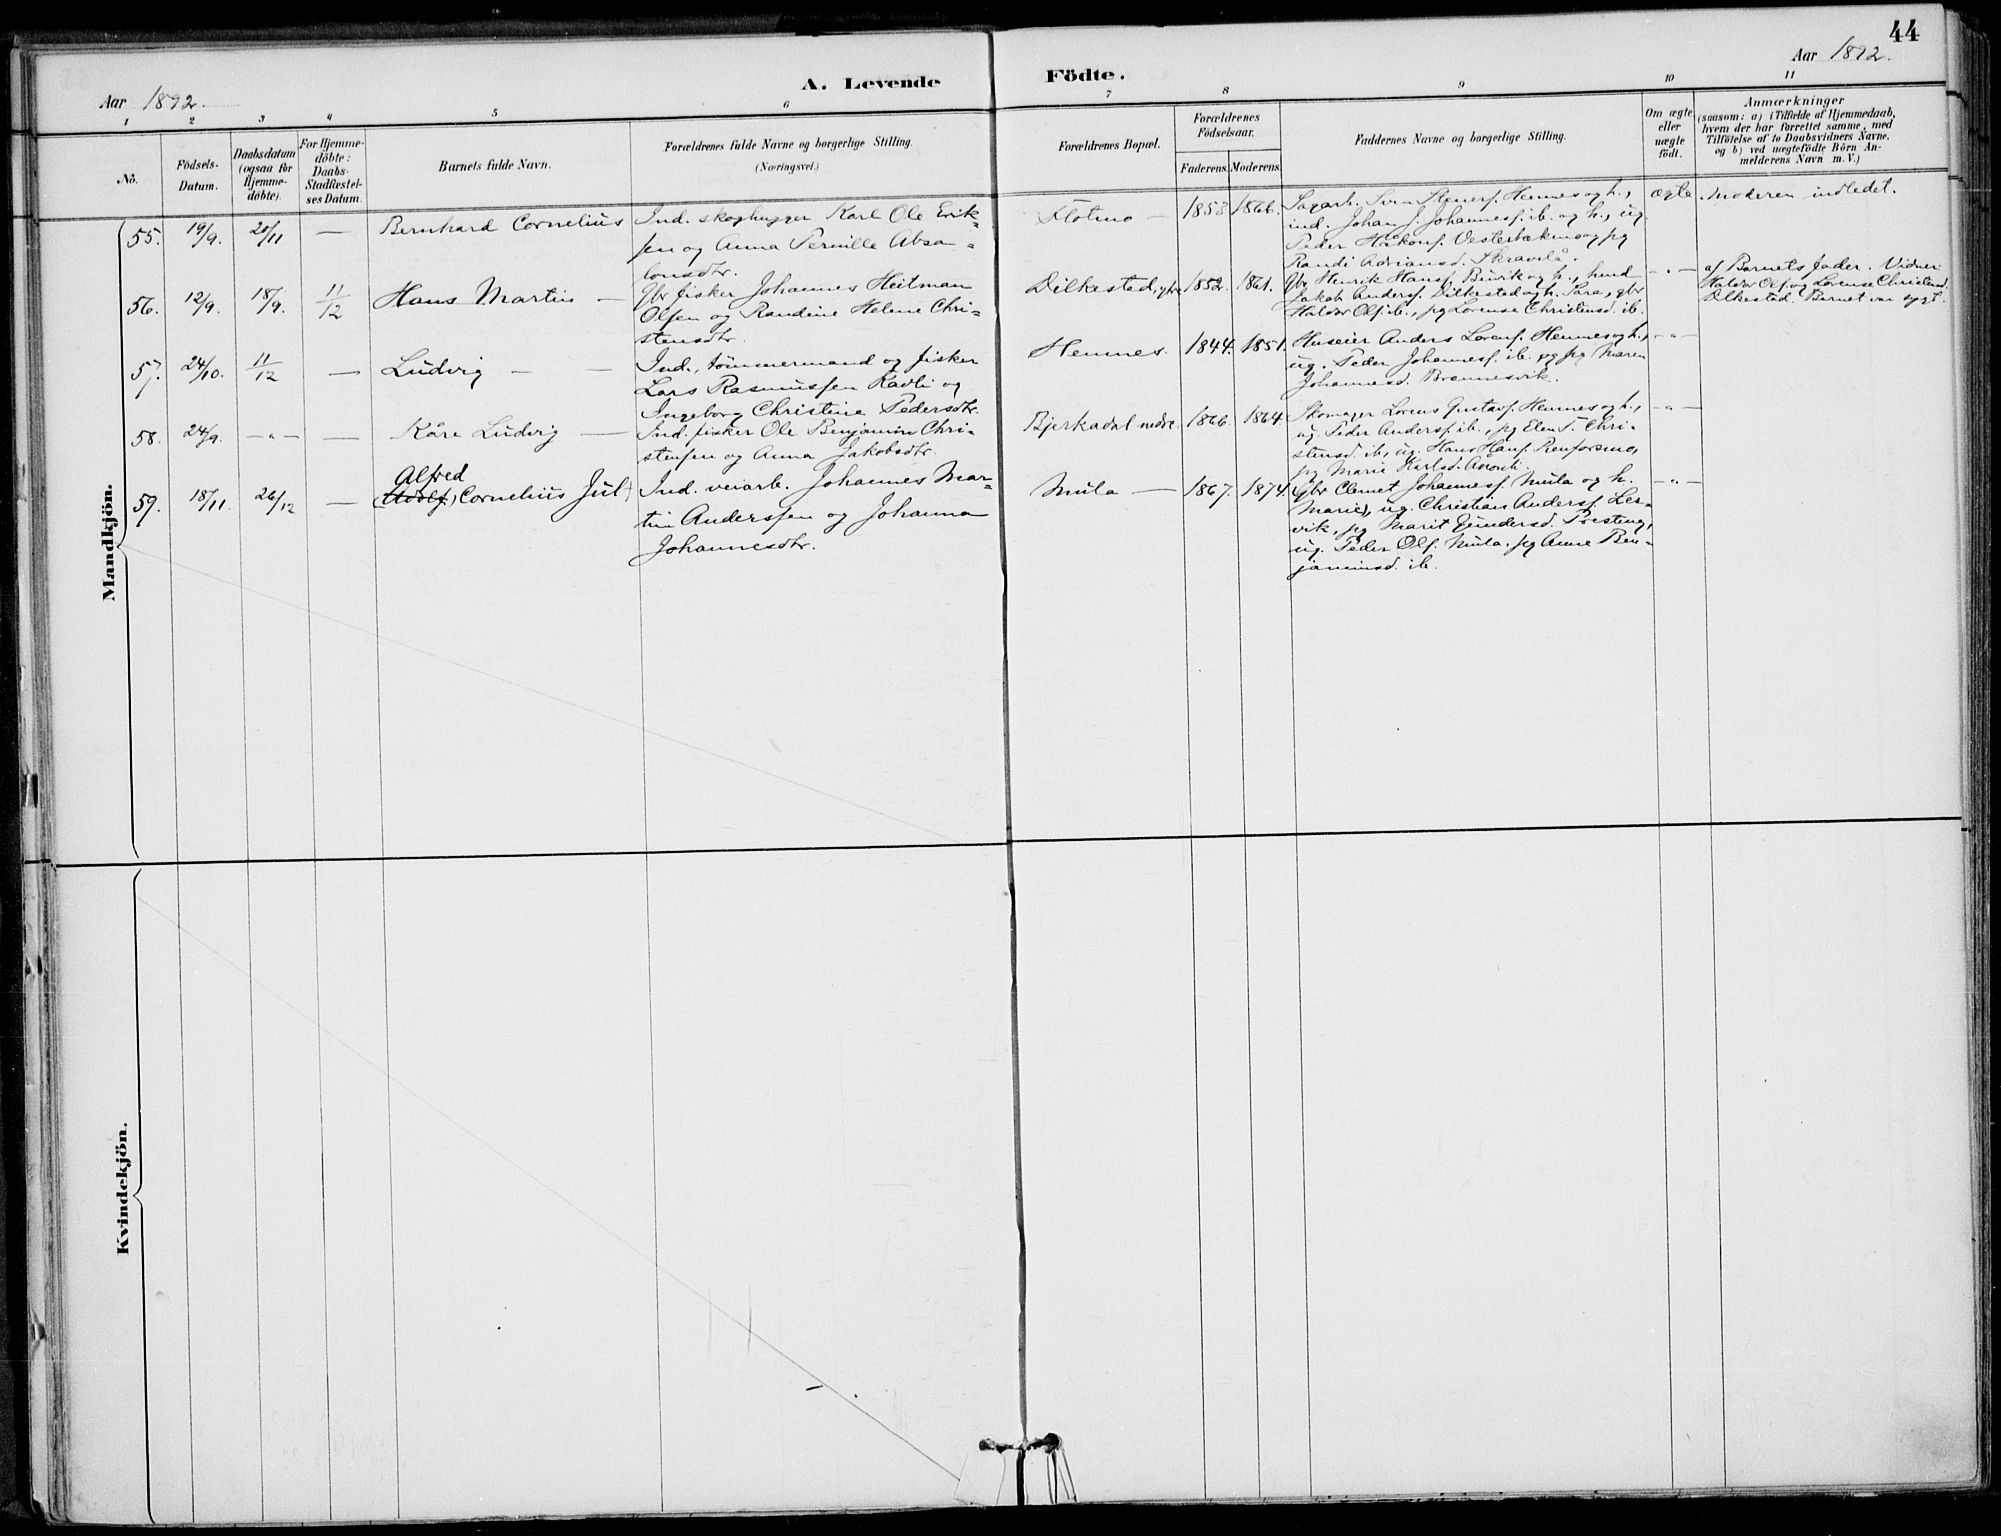 44
Aar 1892.
A. Levende Födte.
Aar 1892.
1 2 3 4 5 6 7 8 9 10 11
No.
Födsels-Datum.
Daabsdatum (ogsaa for Hjemme-döbte).
For Hjemme-döbte: Daabs-Stadfæstel-ses Datum.
Barnets fulde Navn.
Forældrenes fulde Navne og borgerlige Stilling.
(Næringsvei.)
Forældrenes Bopæl.
Forældrenes Födselsaar.
Faderens. Moderens.
Faddernes Navne og borgerlige Stilling.
Om ægte eller uægte födt.
Anmærkninger
(saasom: a) i Tilfælde af Hjemmedaab,
hvem der har forrettet samme, med
Tilföielse af to Daabsvidners Navne.
og b) ved uægtefödte Börn An-
melderens Navn m. V.)
Mandkjön.
55. 19/9. 20/11 — Bernhard Cornelius
Ind. skoghugger Karl Ole Erik-
sen og Anna Pernille Absa-
lonsdtr.
Flotmo — 1858 1866.
Sagarb. Sven Steners. Hemnes og h.,
ind. Johan J. Johanness. ib. og h., ug.
Peder Håkons. Vesterbækmo og pg
Randi Adriansd. Skravlå.
ægte
Moderen indledet.
56. 12/9. 18/9. 11/12 Hans Martin —
Gbr fisker Johannes Heitman
Olsen og Randine Helene Chri-
stensdtr.
Dilkestad, ytre 1852. 1861.
Gbr Henrik Hans. Bievik og h., husd
Jakob Anders. Dilkestad og h. Sara, gbr
Haldor Ols. ib., pg Lorense Christensd. ib.
-"-
af Barnets fader. Vidner
Haldor Ols. og Lorense Christensd.
Dilkestad. Barnet var sygt.
57. 24/10. 11/12 — Ludvig — —
Ind., tømmermand og fisker
Lars Rasmussen Ravli og
Ingeborg Christine Pedersdtr.
Hemnes. 1844. 1851.
Huseier Anders Lorens. Hemnes og h.,
ug. Peder Johanness. ib. og pg Maren
Johannesd. Brennesvik.
-"-
58. 24/9. -"- — Kåre Ludvig —
Ind. fisker Ole Benjamin Chri-
stensen og Anna Jakobsdtr.
Bjerkadal nedre. 1866. 1864.
Skomager Lorens Gustavs. Hemnes og h.,
ug. Peder Anders. ib., pg Elen P. Chri-
stensd. ib., ug. Hans Hans. Renforsmo,
pg Marie Karlsd.
-"-
59. 18/11. 26/12 — Alfred
(Adolf) Cornelius Jul
Ind. veiarb. Johannes Mar-
tin Anderssen og Johanna
Johannesdtr.
Mula — 1867. 1874.
Gbr Clemet Johanness. Mula og h.
Marie, ug. Christian Anders. Ler-
vik, pg Marit Gundersd. Presteng,
ug. Peder Ols. Mula, pg Anne Ben-
jaminsd. ib.
-"-
Kvindekjön.